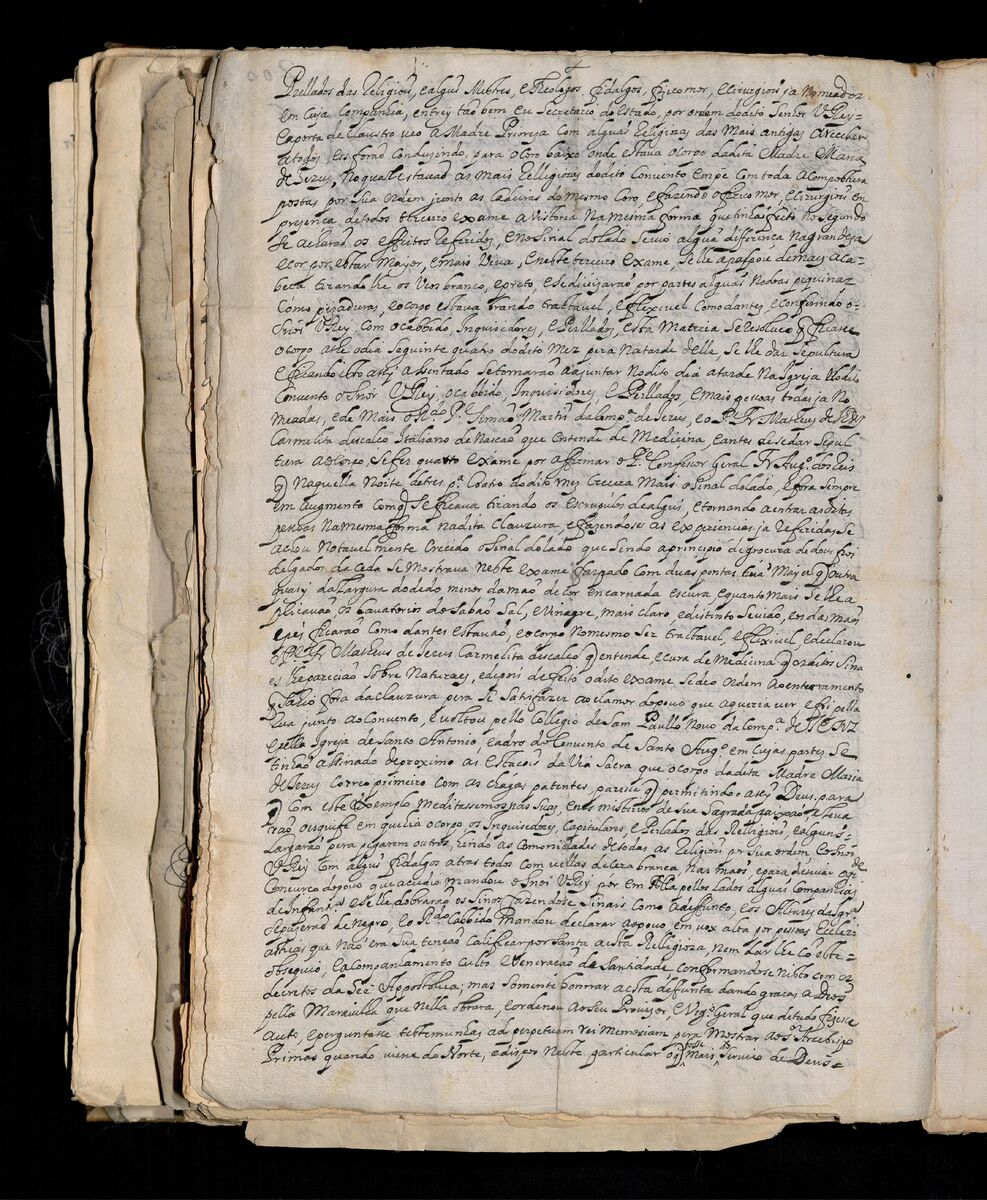 Prellados das Religiois, e algũs Mestres, e Theologos, fidalgos, fizico mor, e Cirurgiois ja Nomeados
em Cuja Companhia, entrey tao bem eu Secretario do Estado, por ordem do dito Senhor V Rey =
e a porta do Claustro veo a Madre Prioreza Com alguas Religiozas das Mais antigas a Receber
a todos, e os forao Conduzindo, para o Coro baixo onde estava o Corpo da dita Madre Maria
de Jezus, no qual estavao as Mais Relligiozas do dito Convento em pe Com toda a Compostura
postas por Sua Ordem junto as Cadeiras do mesmo Coro, e fazendo o fizico mor, e Cirurgiois em
prezença de todos terceiro exame a vistoria Na mesma forma que tinha feito No Segundo
Se acharao os effeitos Referidos, e No Sinal do lado Se vio algũa differença Na grandeza
e Cor por estar Mayor, e mais Viva, e neste terceiro Exame, Se lhe apalpou de mais a Ca=
beça tirando lhe os Veos branco, e preto, e Se divizarao por partes alguas Nodoas piquinaz
Como pizaduras, e o Corpo estava brando tractavel, e flexivel Como dantes, e Confirindo o
Snor V Rey, Com o Cabbido, Inquisidores, e Prellados, esta Materia Se Resolveo q ficasse
o Corpo athe o dia Seguinte quatro do dito Mez pera Na tarde delle, Se lhe dar Sepultura
e ficando isto assy assentado Se tornarao a ajuntar No dito dia a tarde Na Igreja do dito
Convento o Snor V Rey, o Cabbido, Inquisidores, e Prellados, e Mais pessoas todas ja No
meadas, e de Mais o Rdo Pe Simao Martins da Compa de Jezus, e o Pe Fr Matheus de Jezus
Carmelita descalço Italiano de Nascao que entende de Medicina, e antes de Se dar Sepul
tura ao Corpo, Se fez quarto exame por affirmar o Pe Confessor Geral Fr Augo dos Reis
q Naquella Noite de tres pa Coatro do dito mez Crecera Mais o Sinal do lado, e fora Sempre
em Augmento Com q Se ficava tirando os Escrupulos de algũs, e tornando a entrar as ditas
pessoas Na mesma forma na dita Clauzura, e fazendose as experiencias ja Referidas Se
achou Notavelmente Crecido o Sinal do lado que Sendo a principio de grossura de dous fios
delgados da Ceda Se Mostrava Neste exame Largado Com duas pontas hũa Mayor q outra
quasi da Largura do dedo menor da mao de Cor encarnada escura e quanto Mais Se lhe a
plicavao os lavatorios de Sabao Sal, e Vinagre, mais claro, e distinto Se via, e nas maos
e pes ficarao Como dantes estavao, e o Corpo No mesmo Ser tractavel, e flexivel, e declarou
o Pe Fr Matheus de Jezus Carmelita descalço q entende, e Cura de Medicina q os ditos Sina
es lhe pareciao Sobre Naturaes, e depois de feito o dito exame, Se deo Ordem ao enterramento
q Sahio fora da Clauzura pera Se Satisfazer ao clamor do povo que a queria ver, e foi pella
Rua junto ao Convento, e voltou pello Collegio de Sam Paullo Novo da Compa de JEZUZ
e pella Igreja de Santo Antonio, e adro do Convento de Santo Augo em Cujas partes Se
tinhao assinado de proximo as Estaçois da Via Sacra que o Corpo da dita Madre Maria
de Jezus Correo primeiro Com as Chagas patentes, parece q permitindo o assy Deus, para
q Com este Exemplo Meditassemos nas Suas, e nos misterios de Sua Sagrada paixao, e leva
rao o esquife em que hia o Corpo os Inquisidores, Capitulares, e Prelados das Relligiois, e alguns
Largarao pera pegarem outros, e indo as Comonidades de todas as Religiois por Sua ordem e o Snor
V Rey Com algũs fidalgos atras todos com vellas de Cera branca, Nas maos, e para desviar o gde
Concurço do povo que acudio mandou o Snor V Rey por em Alla pellos lados alguas Companhias
de Infantra e Se lhe dobrarao os Sinos fazendose Sinais Como a deffunto, e os Altares da Igra
Se puzerao de Negro, e o Rdo Cabbido Mandou declarar ao povo em vox alta por pessoas Eccleci
asticas que Nao era Sua tençao Calificar por Santa a esta Relligioza, nem dar lhe Co este
obsequio, e acompanhamento Culto e Veneraçao de Santidade Conformandose Nisto Com os
decretos da See Appostolica; mas Somente honrrar a esta defunta dando graças a Deos
pella Maravilha que nella obrara, e ordenou ao Seu Provisor, e Vigo Geral que de tudo fizesse
Auto, e perguntasse testemunhas ad perpetuam rei Memoriam pera Mostrar ao Sr Arcebispo
Primas quando viesse do Norte, e dispor Neste particular o q fosse Mais Serviço de Deus